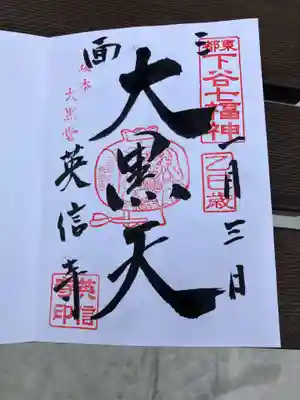 東都
下谷七福神
乙巳歳
一月三日
三面
大黒天
坂本
大黒堂
英信寺
英信寺印